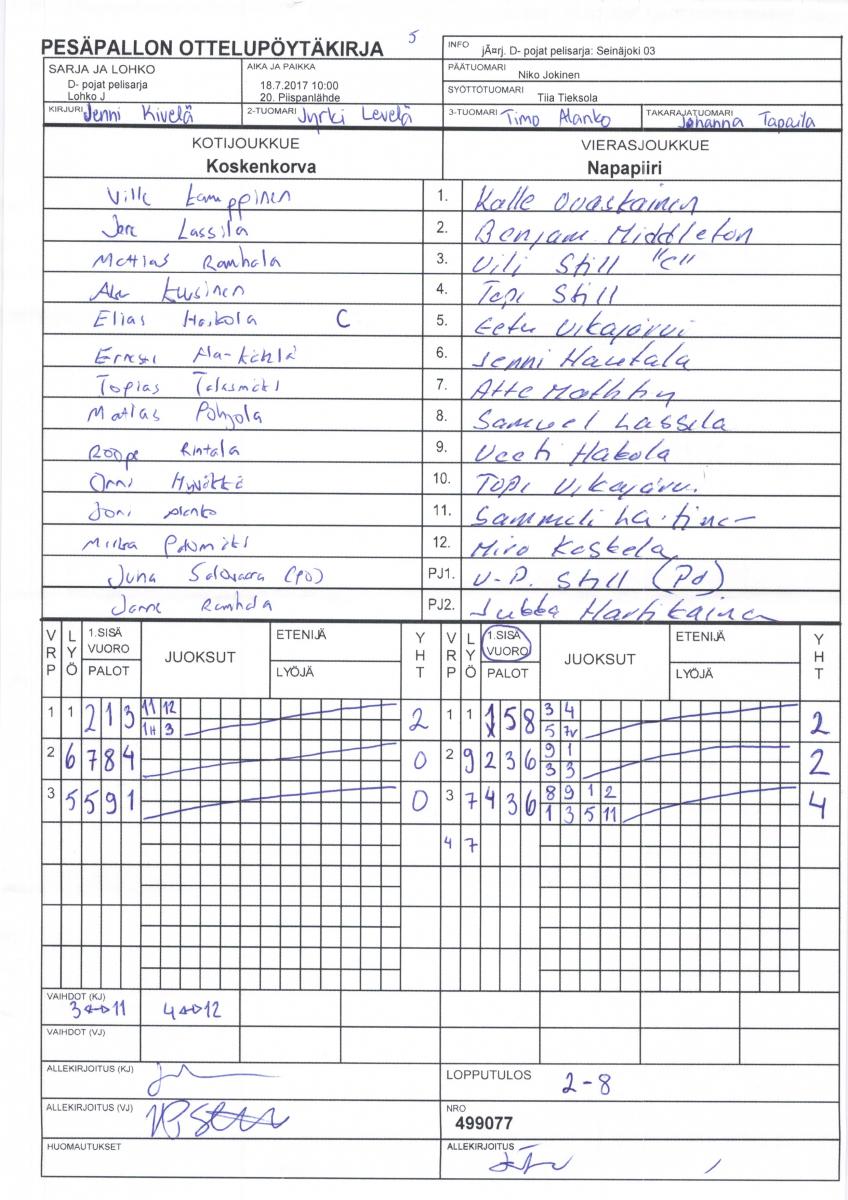 PESÄPALLON OTTELUPÖYTÄKIRJA 5
INFO jÃ¤rj. D- pojat pelisarja: Seinäjoki 03
SARJA JA LOHKO
D- pojat pelisarja
Lohko J
AIKA JA PAIKKA
18.7.2017 10:00
20. Piispanlähde
PÄÄTUOMARI Niko Jokinen
SYÖTTÖTUOMARI Tiia Tieksola
KIRJURI Jenni Kivelä 2-TUOMARI Jyrki Levelä 3-TUOMARI Timo Alanko TAKARAJATUOMARI Johanna Tapaila
KOTIJOUKKUE VIERASJOUKKUE
Koskenkorva Napapiiri
Ville Kamppinen 1. Kalle Ovaskainen
Jere Lassila 2. Benjam Middleton
Mattias Ramhala 3. Vili Still "C"
Kuusinen 4. Topi Still
Elias Haikola C 5. Eetu Vikajärvi
Ala- 6. Jenni Hautala
Topias 7. Atte
Matias Pohjola 8. Samuel Lassila
Roope Rintala 9. Veeti Hakola
Onni Hyvökkö 10. Topi Vikajärvi
Joni Alanko 11. Sammeli
12. Miro Koskela
Juha Salovaara (PJ) PJ1. V-P. Still (PJ)
Janne Ramhala PJ2. Jukka Hartikainen
VRP LYÖ 1.SISÄ VUORO PALOT JUOKSUT ETENIJÄ LYÖJÄ YHT VRP LYÖ 1.SISÄ VUORO PALOT JUOKSUT ETENIJÄ LYÖJÄ YHT
1 1 2 1 3 11 12 2 1 1 1 5 8 3 4 2
1H 3 5 7v
2 6 7 8 4 0 2 9 2 3 6 9 1 2
3 3
3 5 5 9 1 0 3 7 4 3 6 8 9 1 2 4
1 3 5 11
4 7
VAIHDOT (KJ)
3⇔11 4⇔12
VAIHDOT (VJ)
ALLEKIRJOITUS (KJ)
LOPPUTULOS 2-8
ALLEKIRJOITUS (VJ)
NRO
499077
HUOMAUTUKSET
ALLEKIRJOITUS